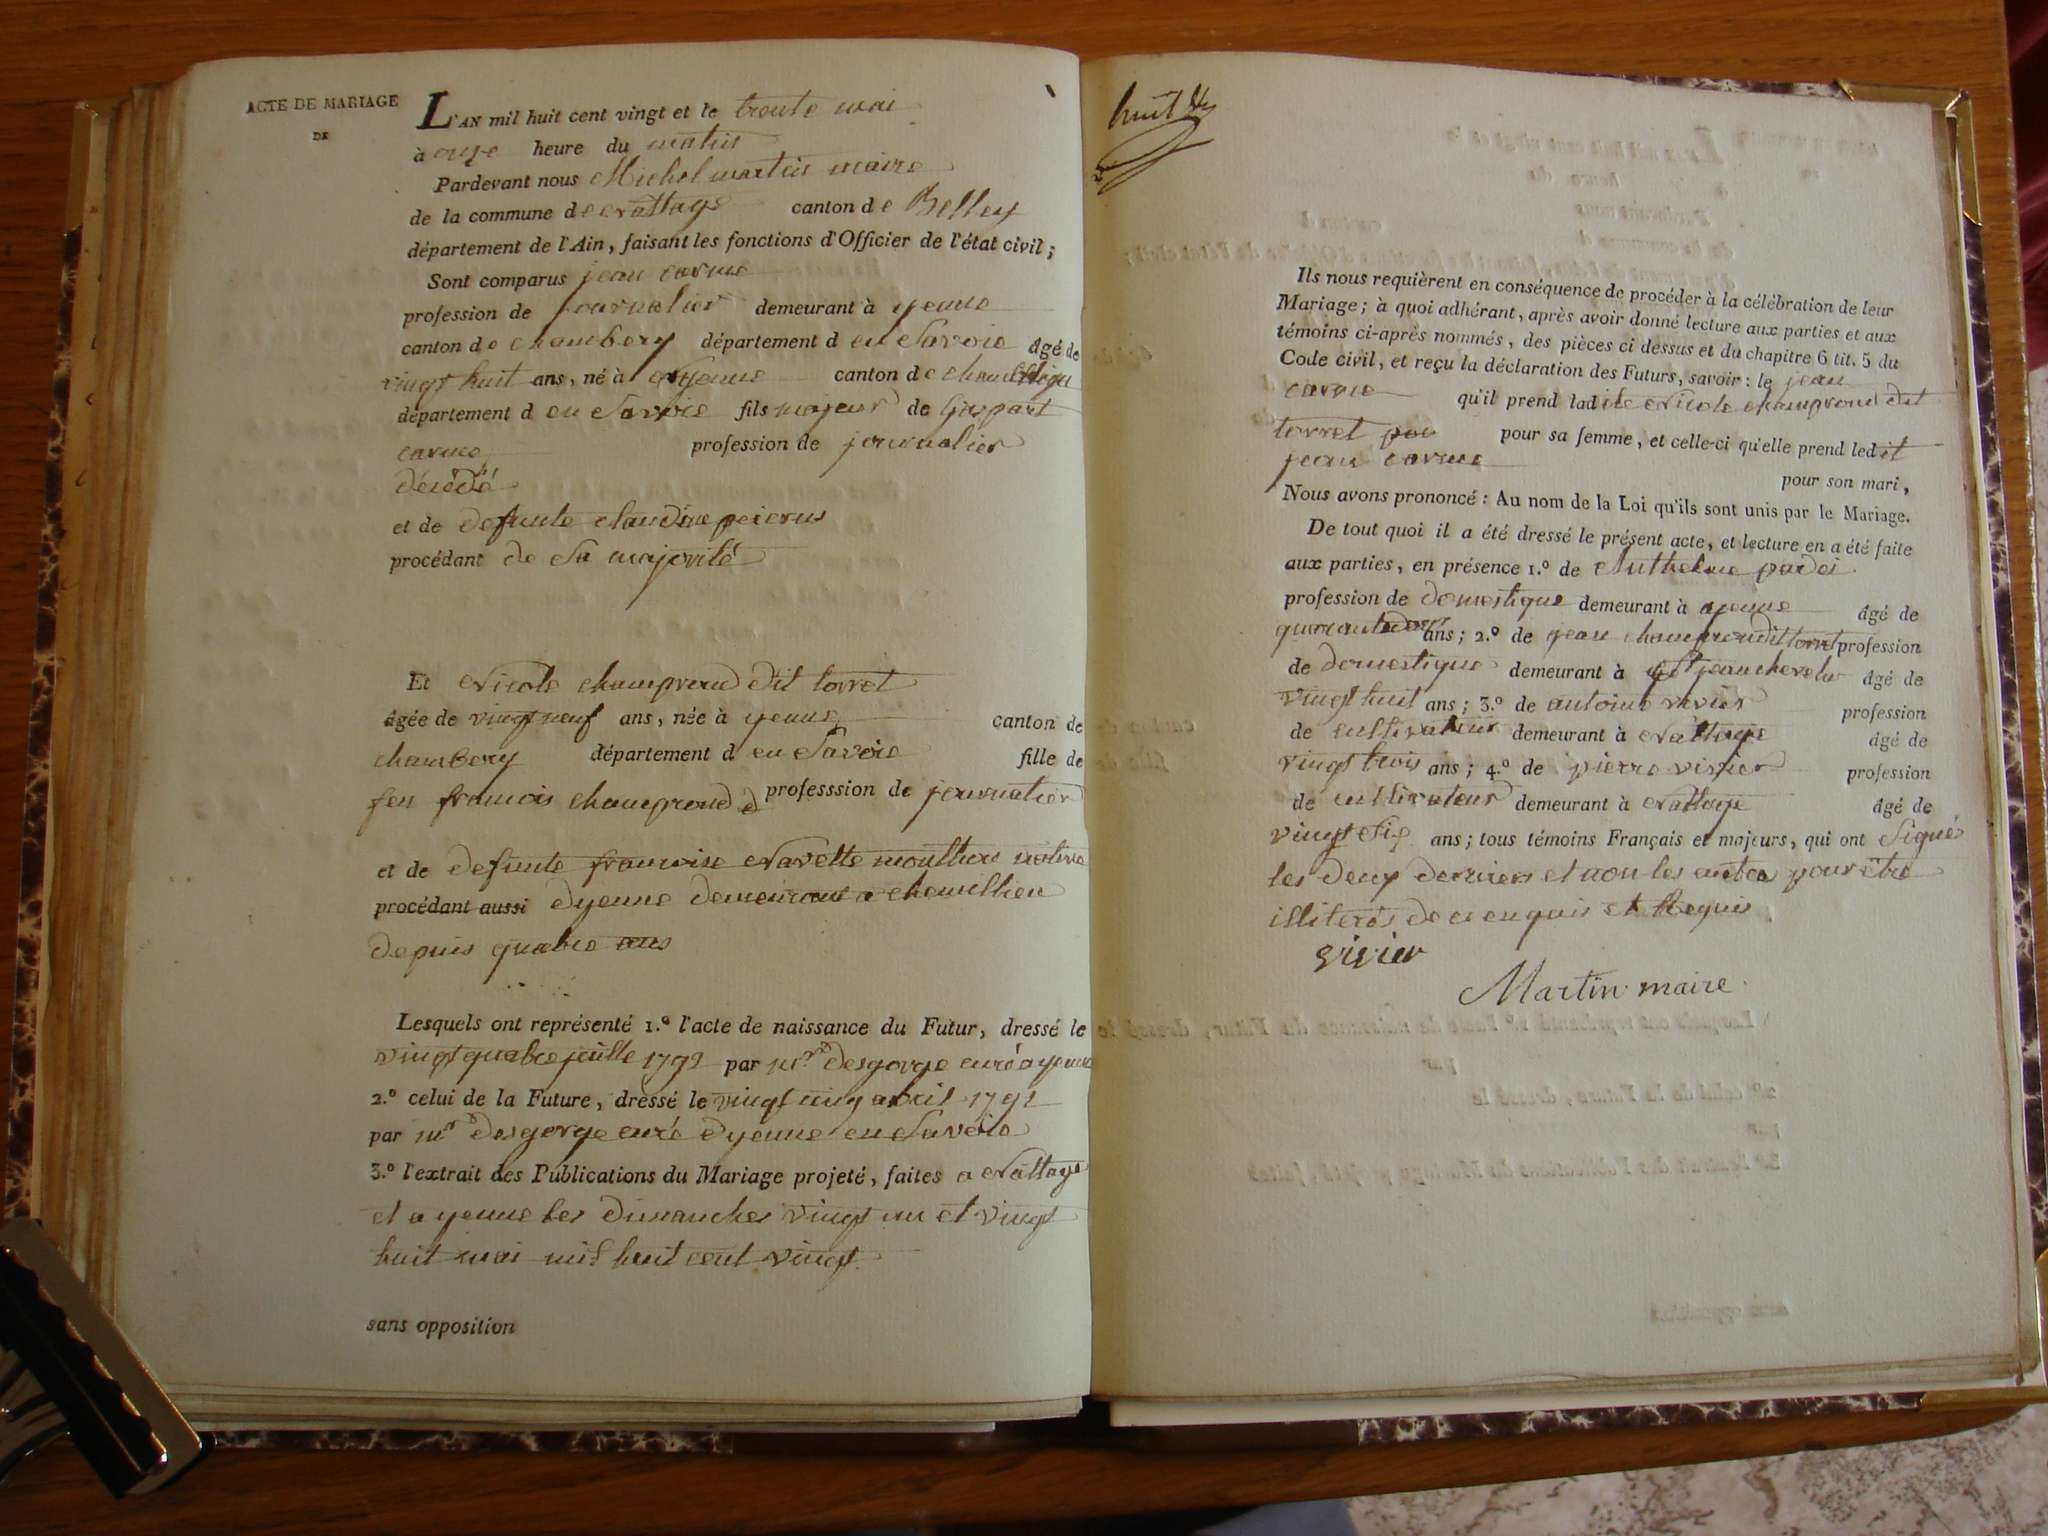 ACTE DE MARIAGE
DE
L'AN mil huit cent vingt et le trente mai
à onze heure du matin
Pardevant nous Michel martin maire
de la commune de nattage canton de Belley
département de l'Ain, faisant les fonctions d'Officier de l'état civil;
Sont comparus jean carme
profession de journalier demeurant à yenne
canton de chambery département d en Savoie âgé de
vingt huit ans, né à yenne canton de
département d en Savoie fils majeur de Gaspart
carme profession de journalier
décédé
et de defunte claudine
procédant de sa majorité
Et nicole champroud dit torret
âgée de vingt neuf ans, née à yenne canton de
chambery département d en Savoie fille de
feu francois champroud profession de journalier
et de defunte francoise navette native
procédant aussi dyenne demeurant a chemillieu
depuis quatre ans
Lesquels ont représenté 1.º l'acte de naissance du Futur, dressé le
vingt quatre juille 1792 par mr desgorge curé a yenne
2.º celui de la Future, dressé le vingt cinq abril 1791
par mr desgorge curé dyenne en Savoie
3.º l'extrait des Publications du Mariage projeté, faites a nattage
et a yenne les dimanches vingt un et vingt
huit mai mil huit cent vingt
sans opposition
huit
Ils nous requièrent en conséquence de procéder à la célébration de leur
Mariage; à quoi adhérant, après avoir donné lecture aux parties et aux
témoins ci-après nommés, des pièces ci dessus et du chapitre 6 tit. 5 du
Code civil, et reçu la déclaration des Futurs, savoir: le jean
carme qu'il prend ladite nicole champroud dit
torret pour sa femme, et celle-ci qu'elle prend ledit
jean carme pour son mari,
Nous avons prononcé: Au nom de la Loi qu'ils sont unis par le Mariage.
De tout quoi il a été dressé le présent acte, et lecture en a été faite
aux parties, en présence 1.º de Anthelme
profession de domestique demeurant à yenne âgé de
quarante ans; 2.º de jean champroud dit torret profession
de domestique demeurant à St jean chevelu âgé de
vingt huit ans; 3.º de antoine vivier profession
de cultivateur demeurant à nattage âgé de
vingt trois ans; 4.º de pierre vivier profession
de cultivateur demeurant à nattage âgé de
vingt six ans; tous témoins Français et majeurs, qui ont signés
les deux derniers et non les autres pour être
illiterés de ce enquis et Requis
vivier
Martin maire